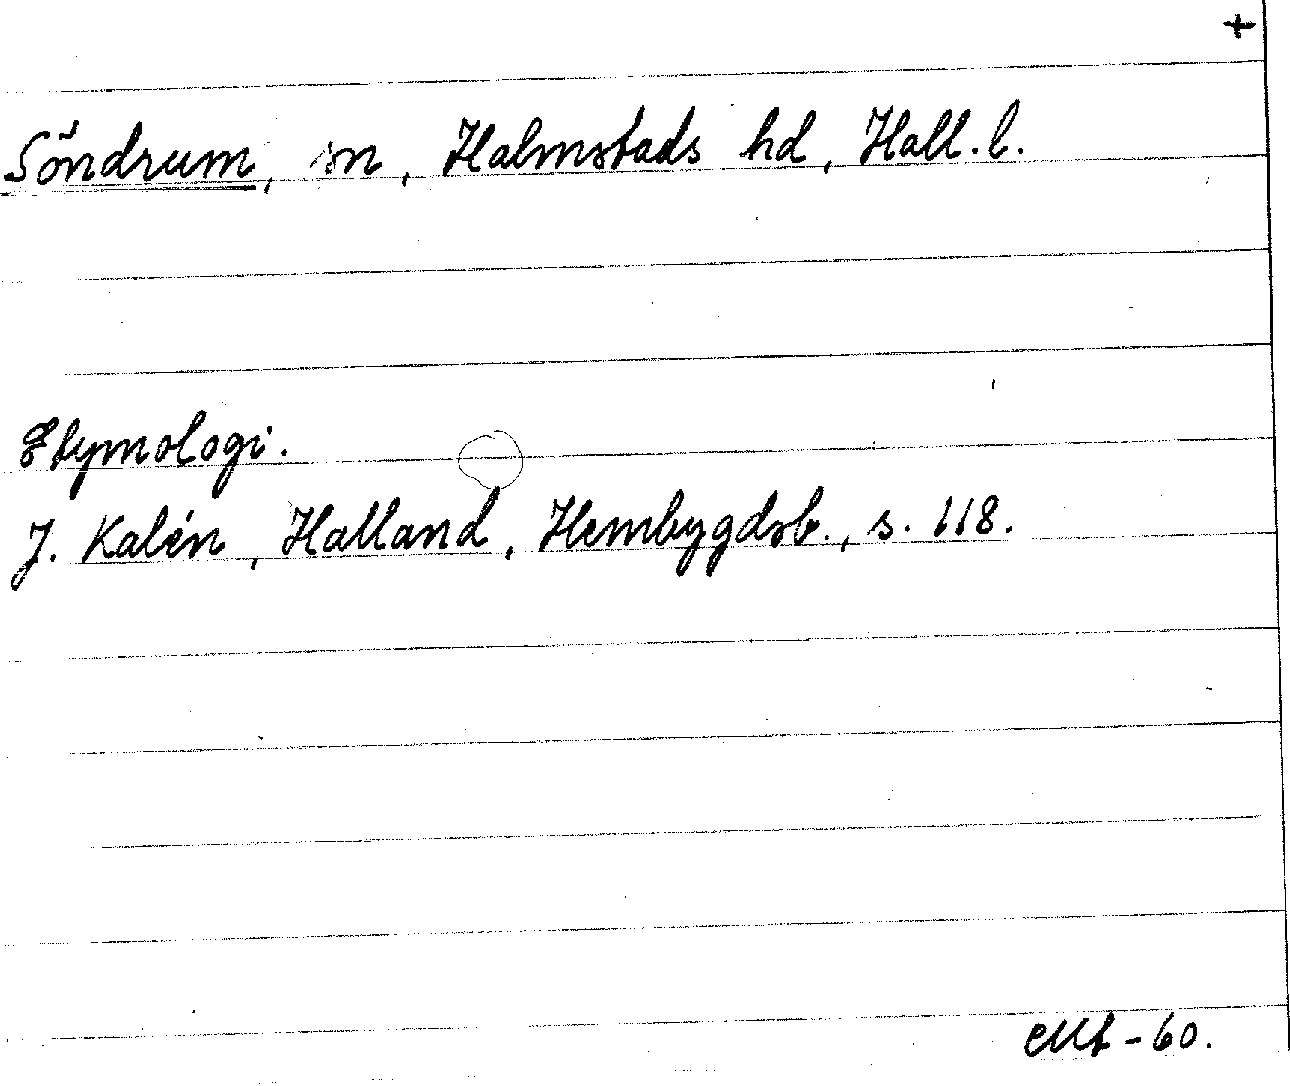 +
Söndrum, sn, Halmstads hd, Hall. l.
Etymologi.
J. Kalén, Halland, Hembygdsb., s. 118.
-60.